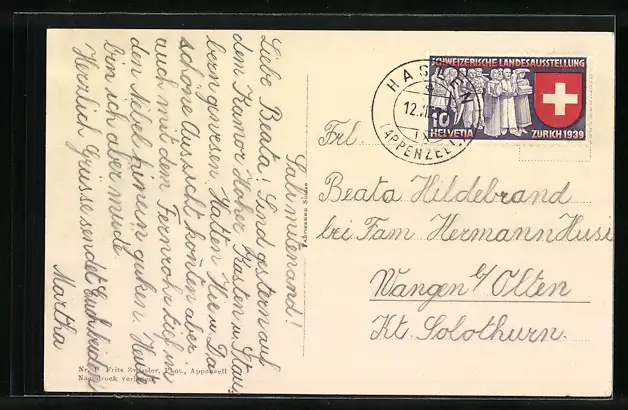 Sali mitenand!
Liebe Beata! Sind gestern auf
dem Kamor Hoher Kasten u. Stau
bern gewesen. Hatten Hie u. Da
schöne Aussicht konten aber
auch mit dem Fernrohr tief in
den Nebel hinein guken. Heut
bin ich aber müde
Herzlich Grüsse sendet Euch beiden
Martha
SCHWEIZERISCHE LANDESAUSSTELLUNG
10
HELVETIA
ZÜRICH 1939
HASLEN
12.
(APPENZELL)
Frl.
Beata Hildebrand
bei Fam Hermann Husi
Wangen b/ Olten
Kt. Solothurn.
Fritz Zwissler, Phot., Appenzell
Nachdruck verboten